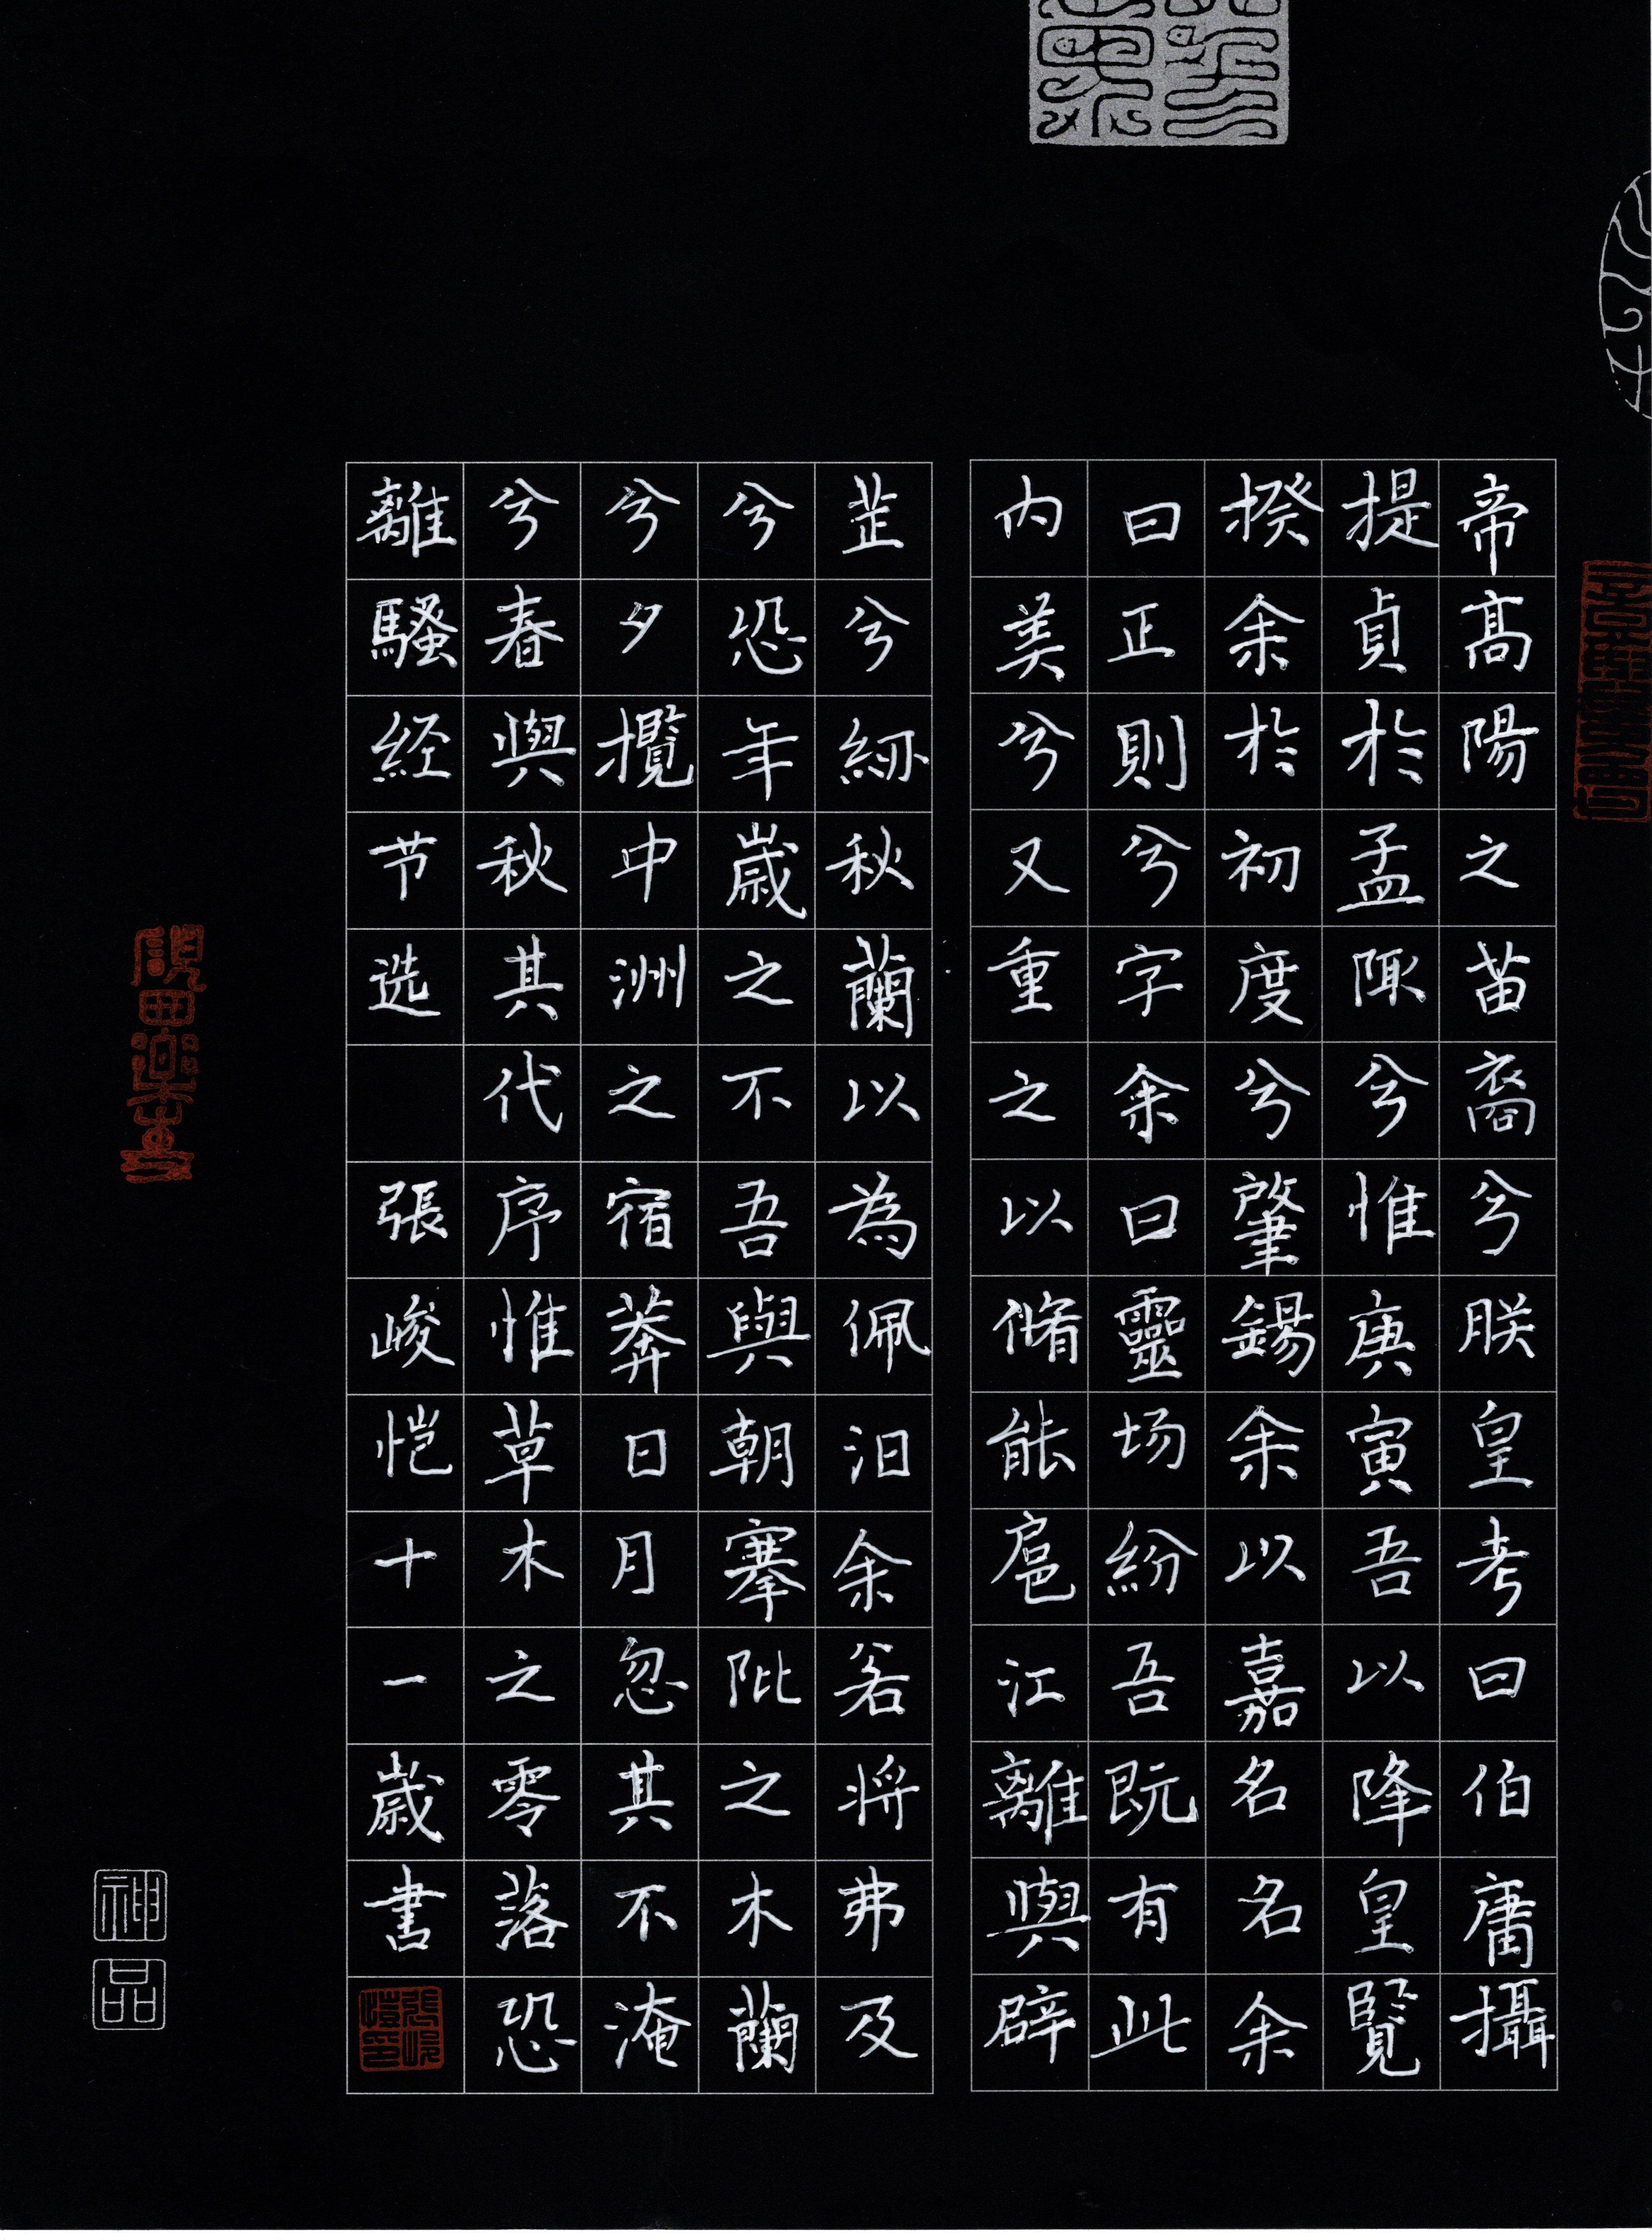 帝高陽之苗裔兮朕皇考曰伯庸攝
提貞於孟陬兮惟庚寅吾以降皇覽
揆余於初度兮肇錫余以嘉名名余
曰正則兮字余曰靈场紛吾既有此
内美兮又重之以脩能扈江離與辟
芷兮紉秋蘭以為佩汩余若将弗及
兮恐年歲之不吾與朝搴阰之木蘭
兮夕攬中洲之宿莽日月忽其不淹
兮春與秋其代序惟草木之零落恐
離騷经节选 張峻恺十一歲書
神品